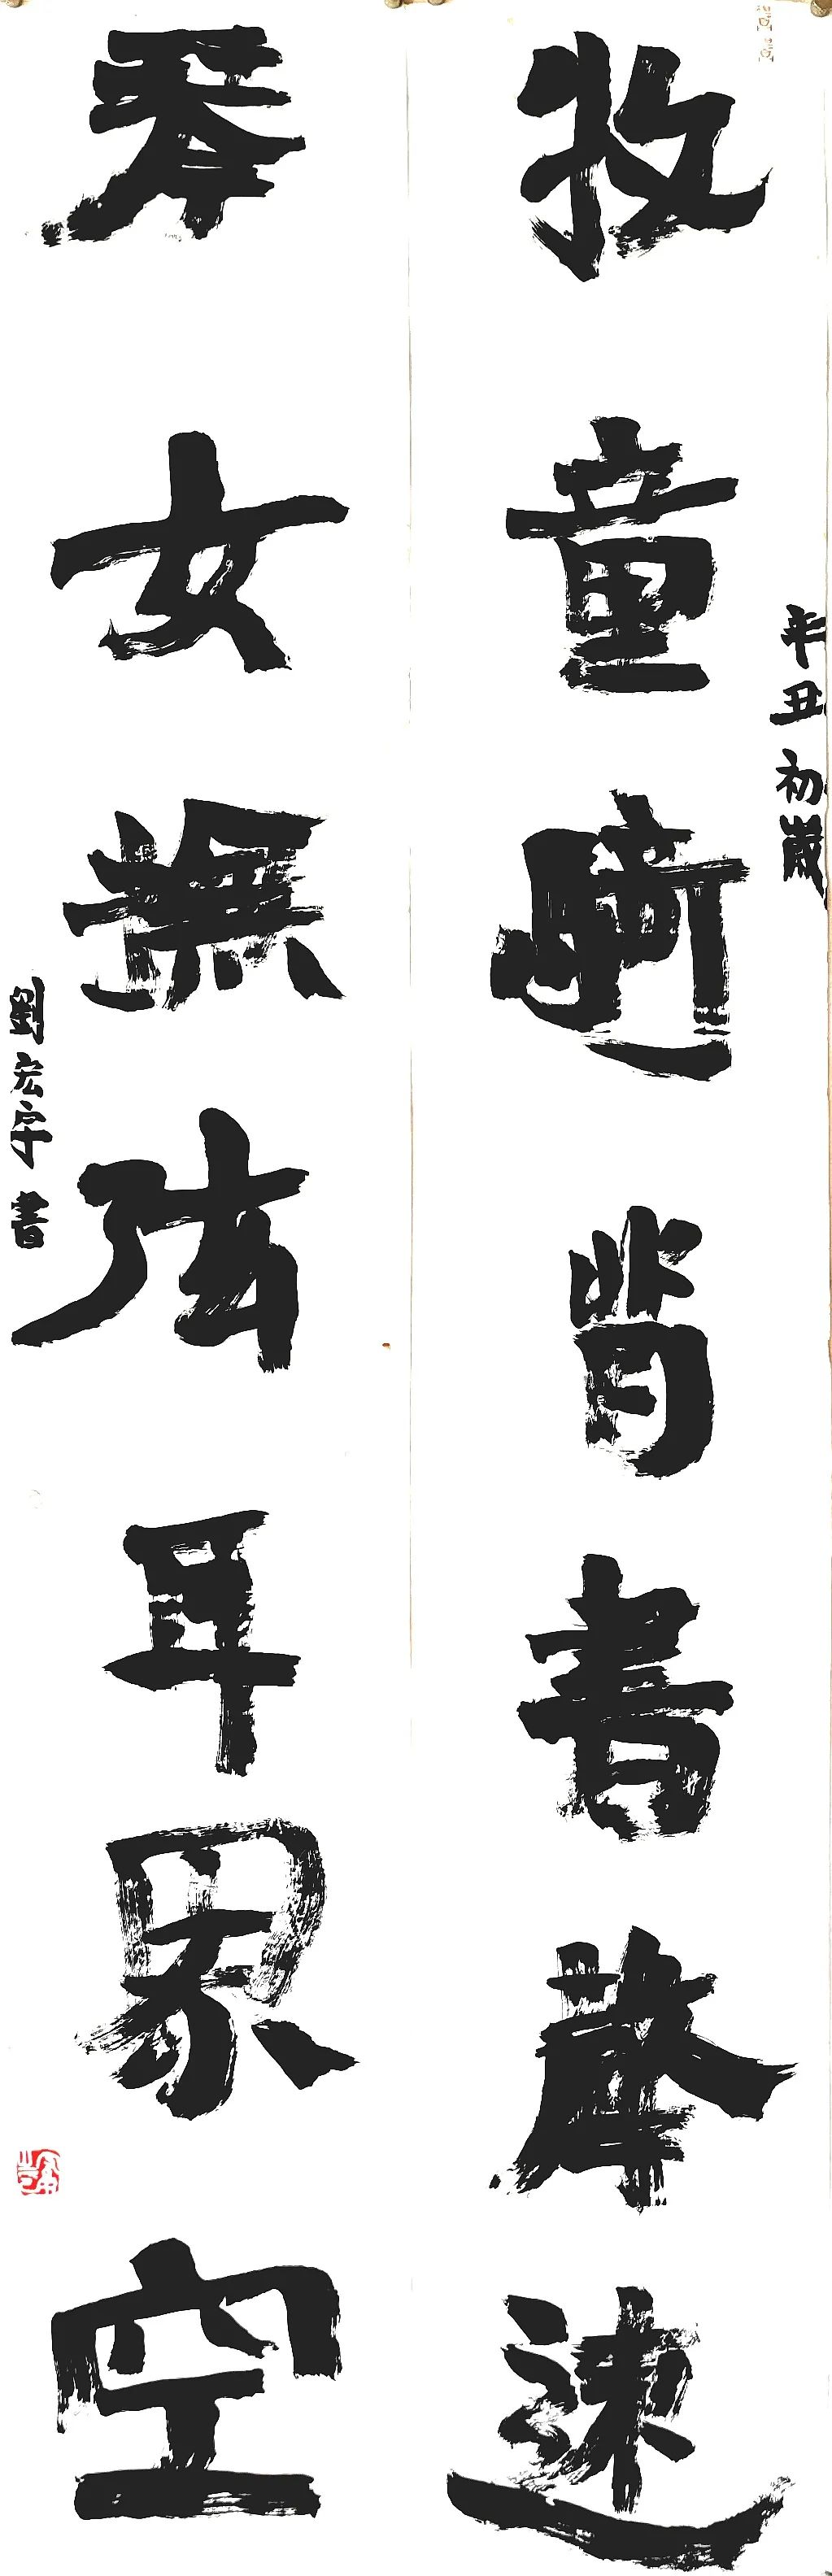 辛丑初歲
牧童騎背書聲速
琴女撫弦耳界空
劉宏宇書